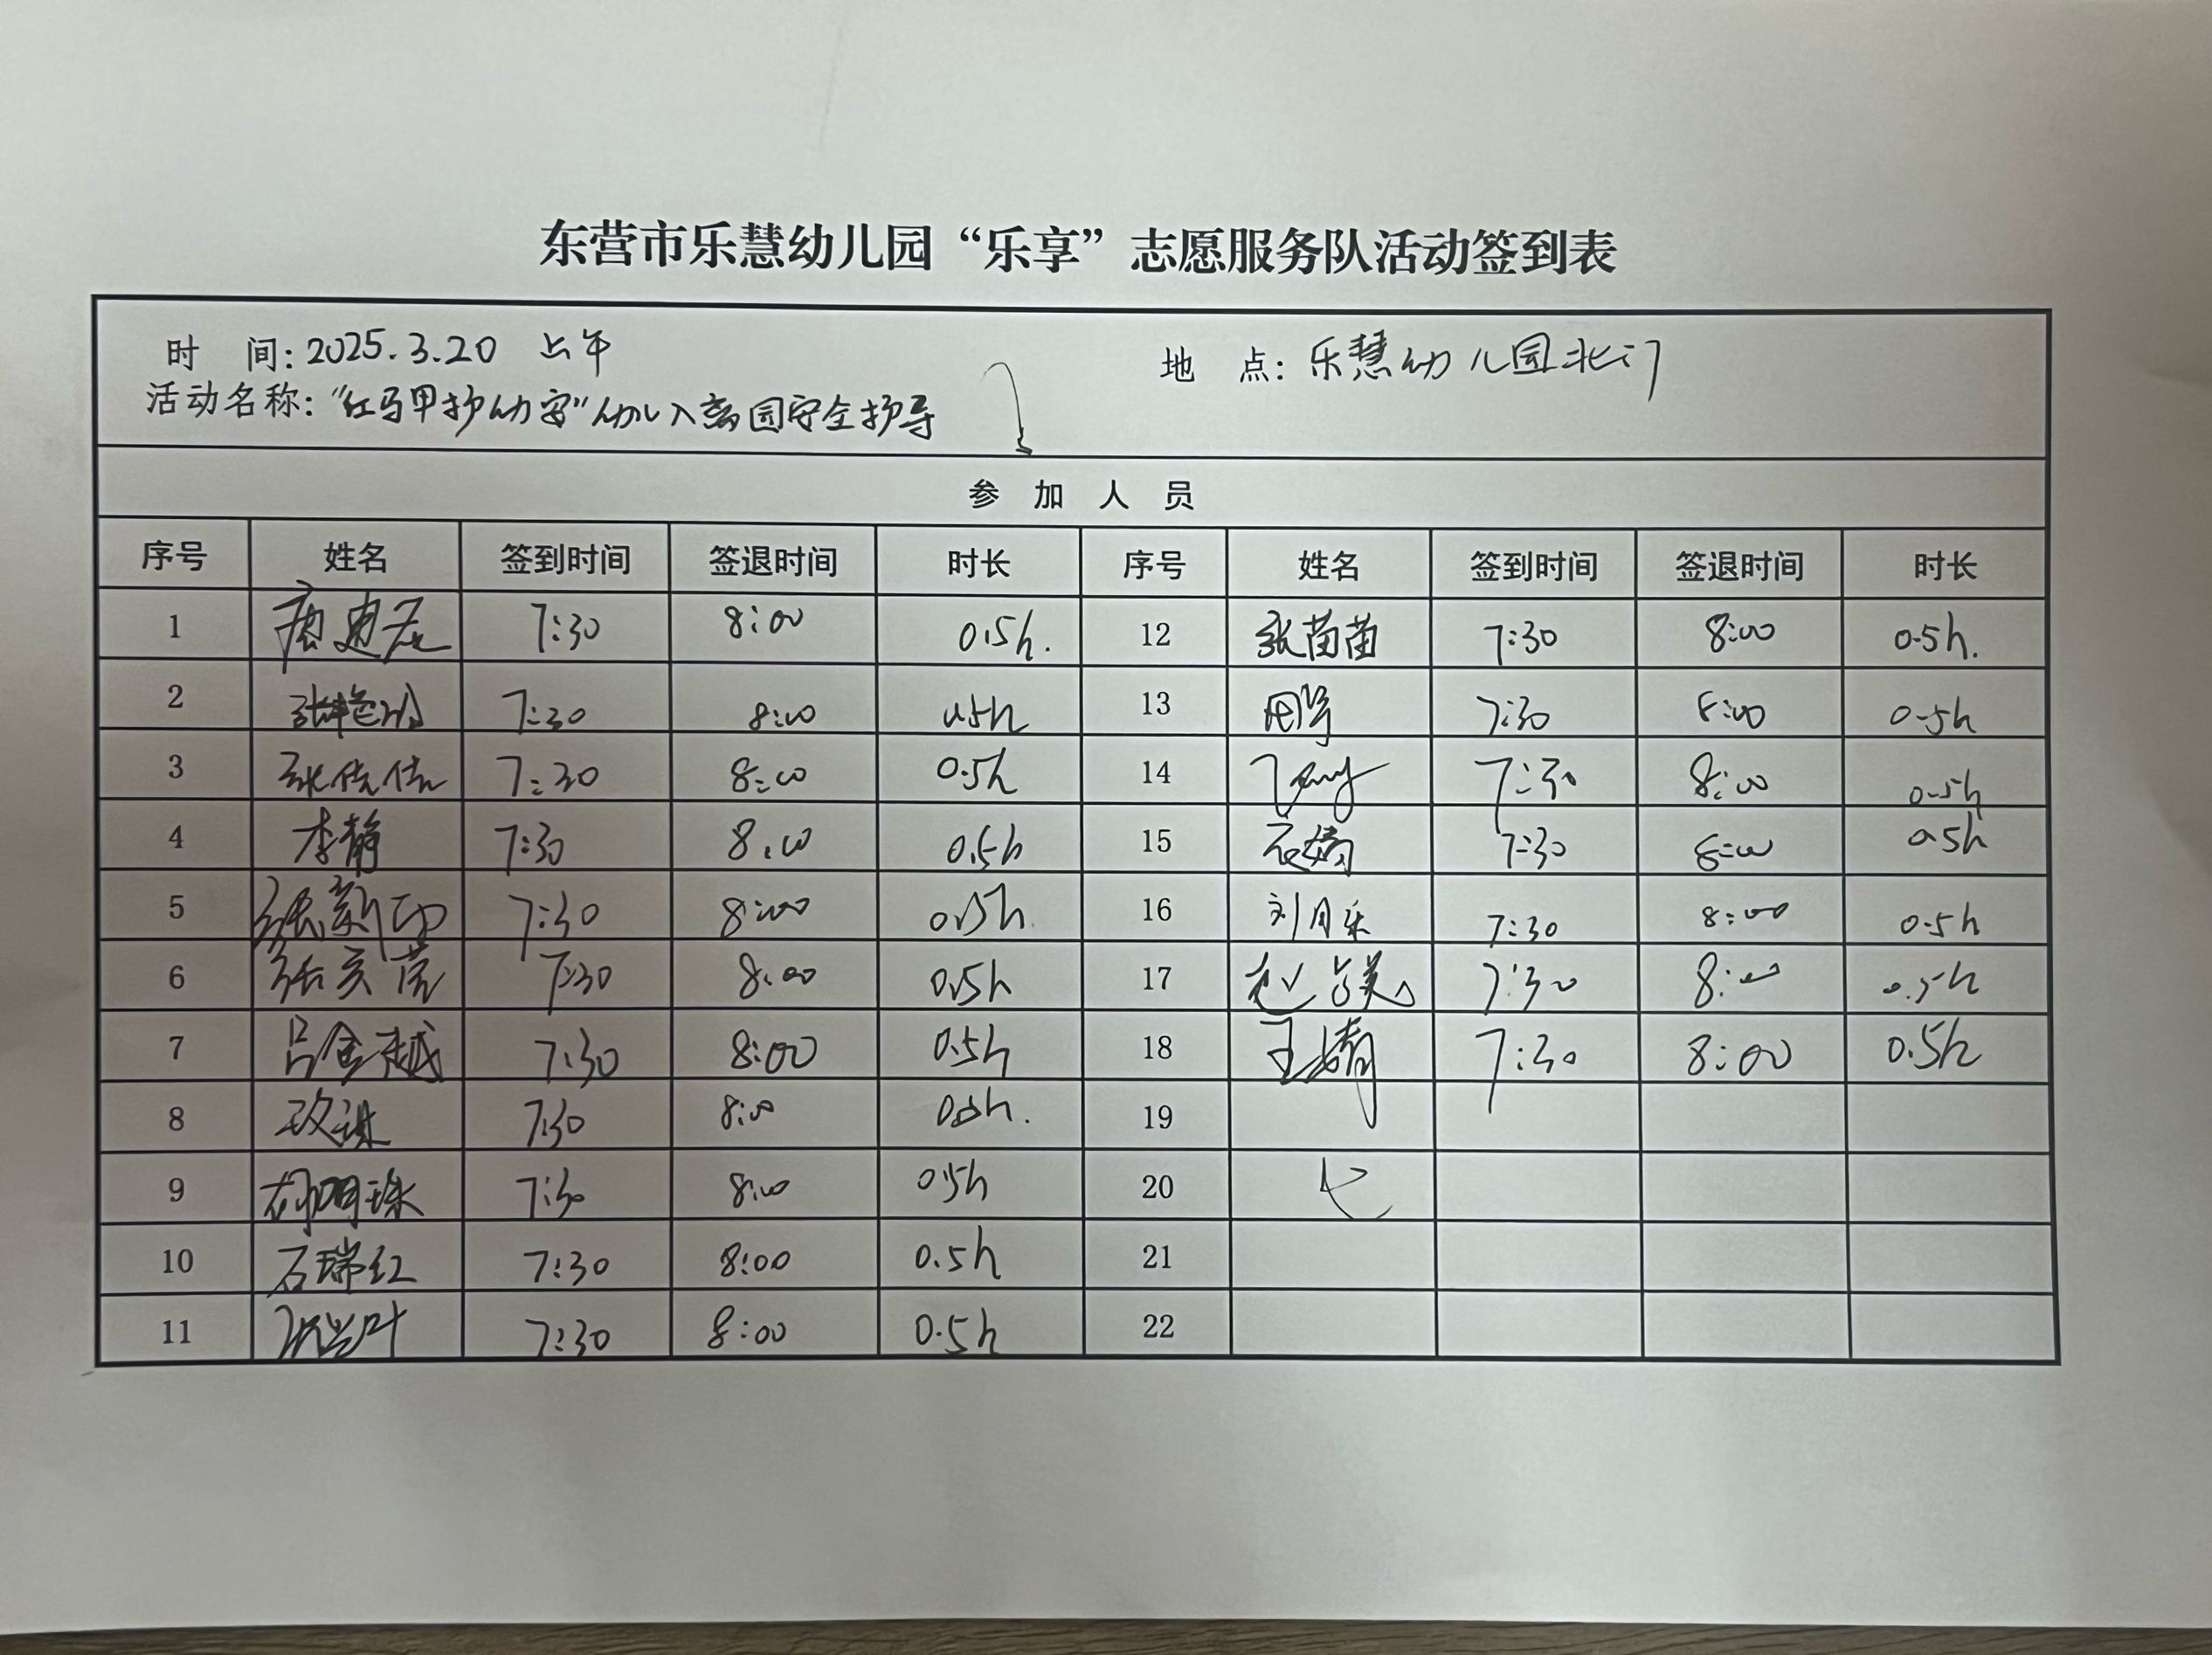 东营市乐慧幼儿园“乐享”志愿服务队活动签到表
时 间: 2025.3.20 上午 地 点: 乐慧幼儿园北门
活动名称: “红马甲护幼安”幼儿入离园安全护导
参 加 人 员
序号 姓名 签到时间 签退时间 时长 序号 姓名 签到时间 签退时间 时长
1 7:30 8:00 0.5h. 12 张苗苗 7:30 8:00 0.5h.
2 7:30 8:00 0.5h 13 7:30 8:00 0.5h
3 张佳佳 7:30 8:00 0.5h 14 7:30 8:00 0.5h
4 李静 7:30 8:00 0.5h 15 7:30 8:00 0.5h
5 7:30 8:00 0.5h 16 刘月乐 7:30 8:00 0.5h
6 7:30 8:00 0.5h 17 7:30 8:00 0.5h
7 吕金越 7:30 8:00 0.5h 18 王婧 7:30 8:00 0.5h
8 7:30 8:00 0.5h. 19
9 7:30 8:00 0.5h 20
10 石瑞红 7:30 8:00 0.5h 21
11 7:30 8:00 0.5h 22